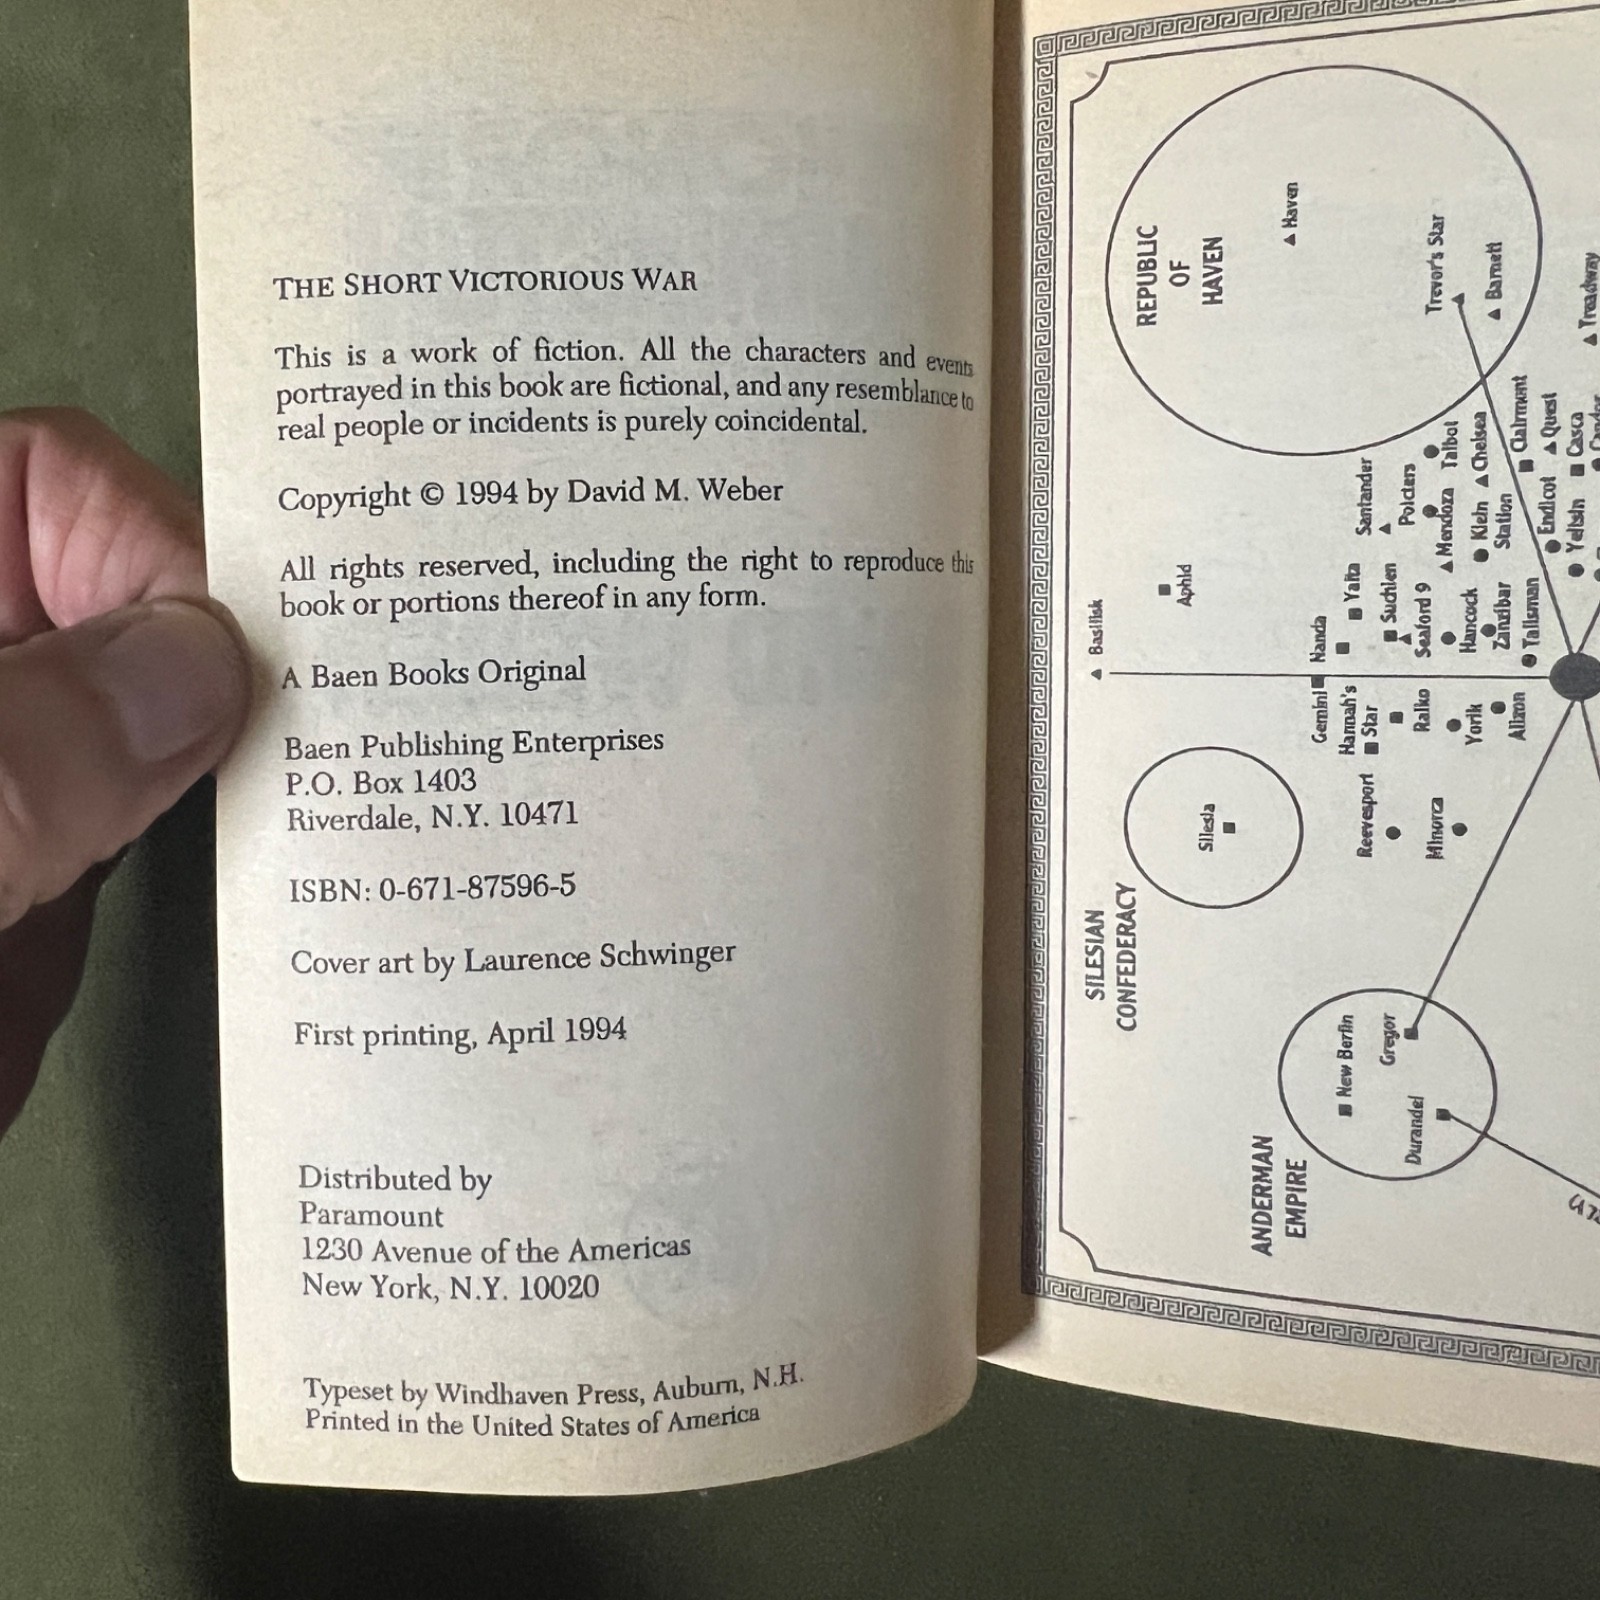 THE SHORT VICTORIOUS WAR
This is a work of fiction. All the characters and events
portrayed in this book are fictional, and any resemblance to
real people or incidents is purely coincidental.
Copyright © 1994 by David M. Weber
All rights reserved, including the right to reproduce this
book or portions thereof in any form.
A Baen Books Original
Baen Publishing Enterprises
P.O. Box 1403
Riverdale, N.Y. 10471
ISBN: 0-671-87596-5
Cover art by Laurence Schwinger
First printing, April 1994
Distributed by
Paramount
1230 Avenue of the Americas
New York, N.Y. 10020
Typeset by Windhaven Press, Auburn, N.H.
Printed in the United States of America
REPUBLIC
OF
HAVEN
Haven
Trevor's Star
Barnett
Treadway
Basilisk
Aphid
Santander
Poicters
Talbot
Mendoza
Chelsea
Klein
Station
Clairmont
Quest
Endicot
Casca
Yeltsin
Yalta
Nanda
Suchien
Seaford 9
Hancock
Zanzibar
Talisman
Gemini
Hannah's
Star
Ralko
Yorik
Alizon
Reevesport
Minorca
SILESIAN
CONFEDERACY
Silesia
ANDERMAN
EMPIRE
New Berlin
Gregor
Durandel